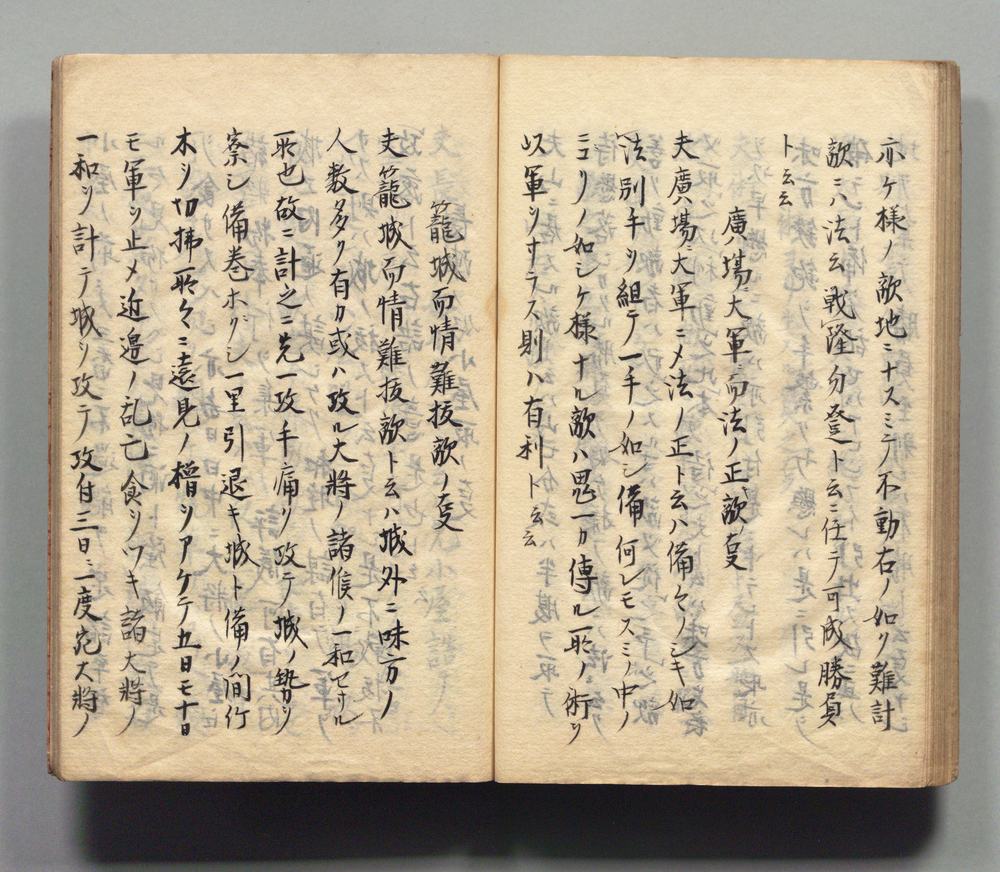 亦ケ様ノ敵地ニナスミテ不動右ノ如ク難計
敵ニハ法云戦隆分登ト云ニ任テ可成勝負
ト云云
廣場ニ大軍ニ而法ノ正敵ノ夏
夫廣場ニ大軍ニメ法ノ正ト云ハ備々ノシキ如
法別手ヲ組テ一手ノ如シ備何レモスミノ中ノ
ミコリノ如シケ様ナル敵ハ鬼一カ傳ル所ノ術ヲ
以軍ヲナラス則ハ有利ト云云
籠城而情難抜敵ノ夏
夫籠城而情難抜敵ト云ハ城外ニ味方ノ
人数多ク有カ或ハ攻ル大將ノ諸候ノ一和セサル
所也故ニ計之ニ先一攻手痛ク攻テ城ノ勢ヲ
察シ備巻ホグシ一里引退キ城ト備ノ間竹
木ヲ切拂所々ニ遠見ノ櫓ヲアケテ五日モ十日
モ軍ヲ止メ近邉ノ乱亡食ヲツキ諸大將ノ
一和ヲ計テ城ヲ攻テ攻付三日ニ一度宛大將ノ